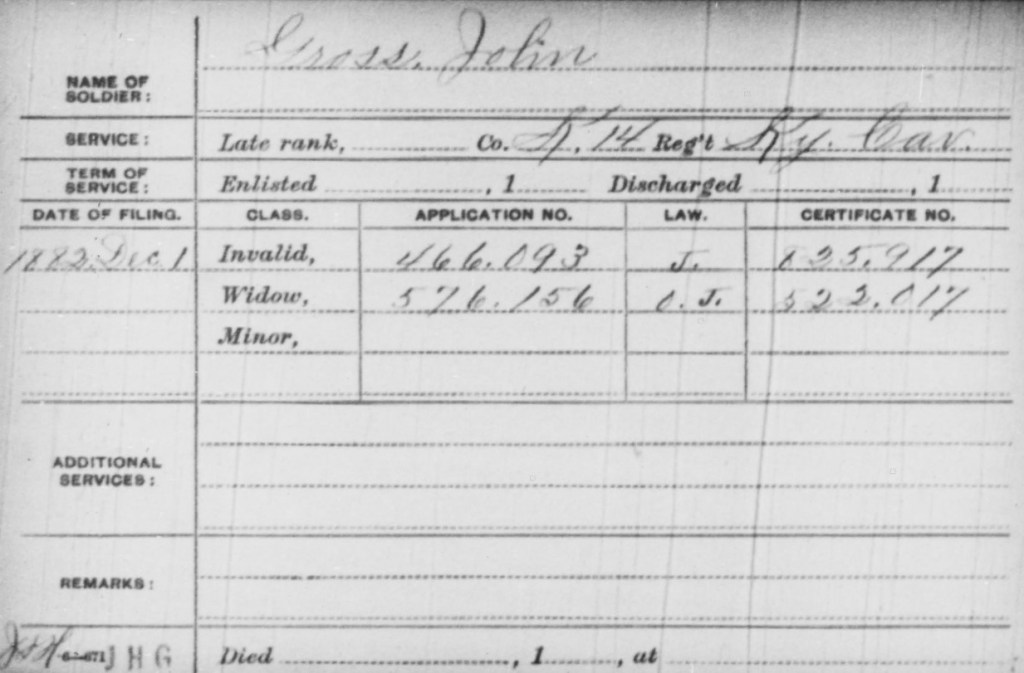 Gross, John
NAME OF SOLDIER:
SERVICE: Late rank, Co. K, 14 Reg't Ky. Cav.
TERM OF SERVICE: Enlisted , 1 Discharged , 1
DATE OF FILING. CLASS. APPLICATION NO. LAW. CERTIFICATE NO.
1882 Dec. 1 Invalid, 466.093 J. 825.917
Widow, 576.156 O. J. 522.017
Minor,
ADDITIONAL SERVICES:
REMARKS:
J H G Died , 1 , at